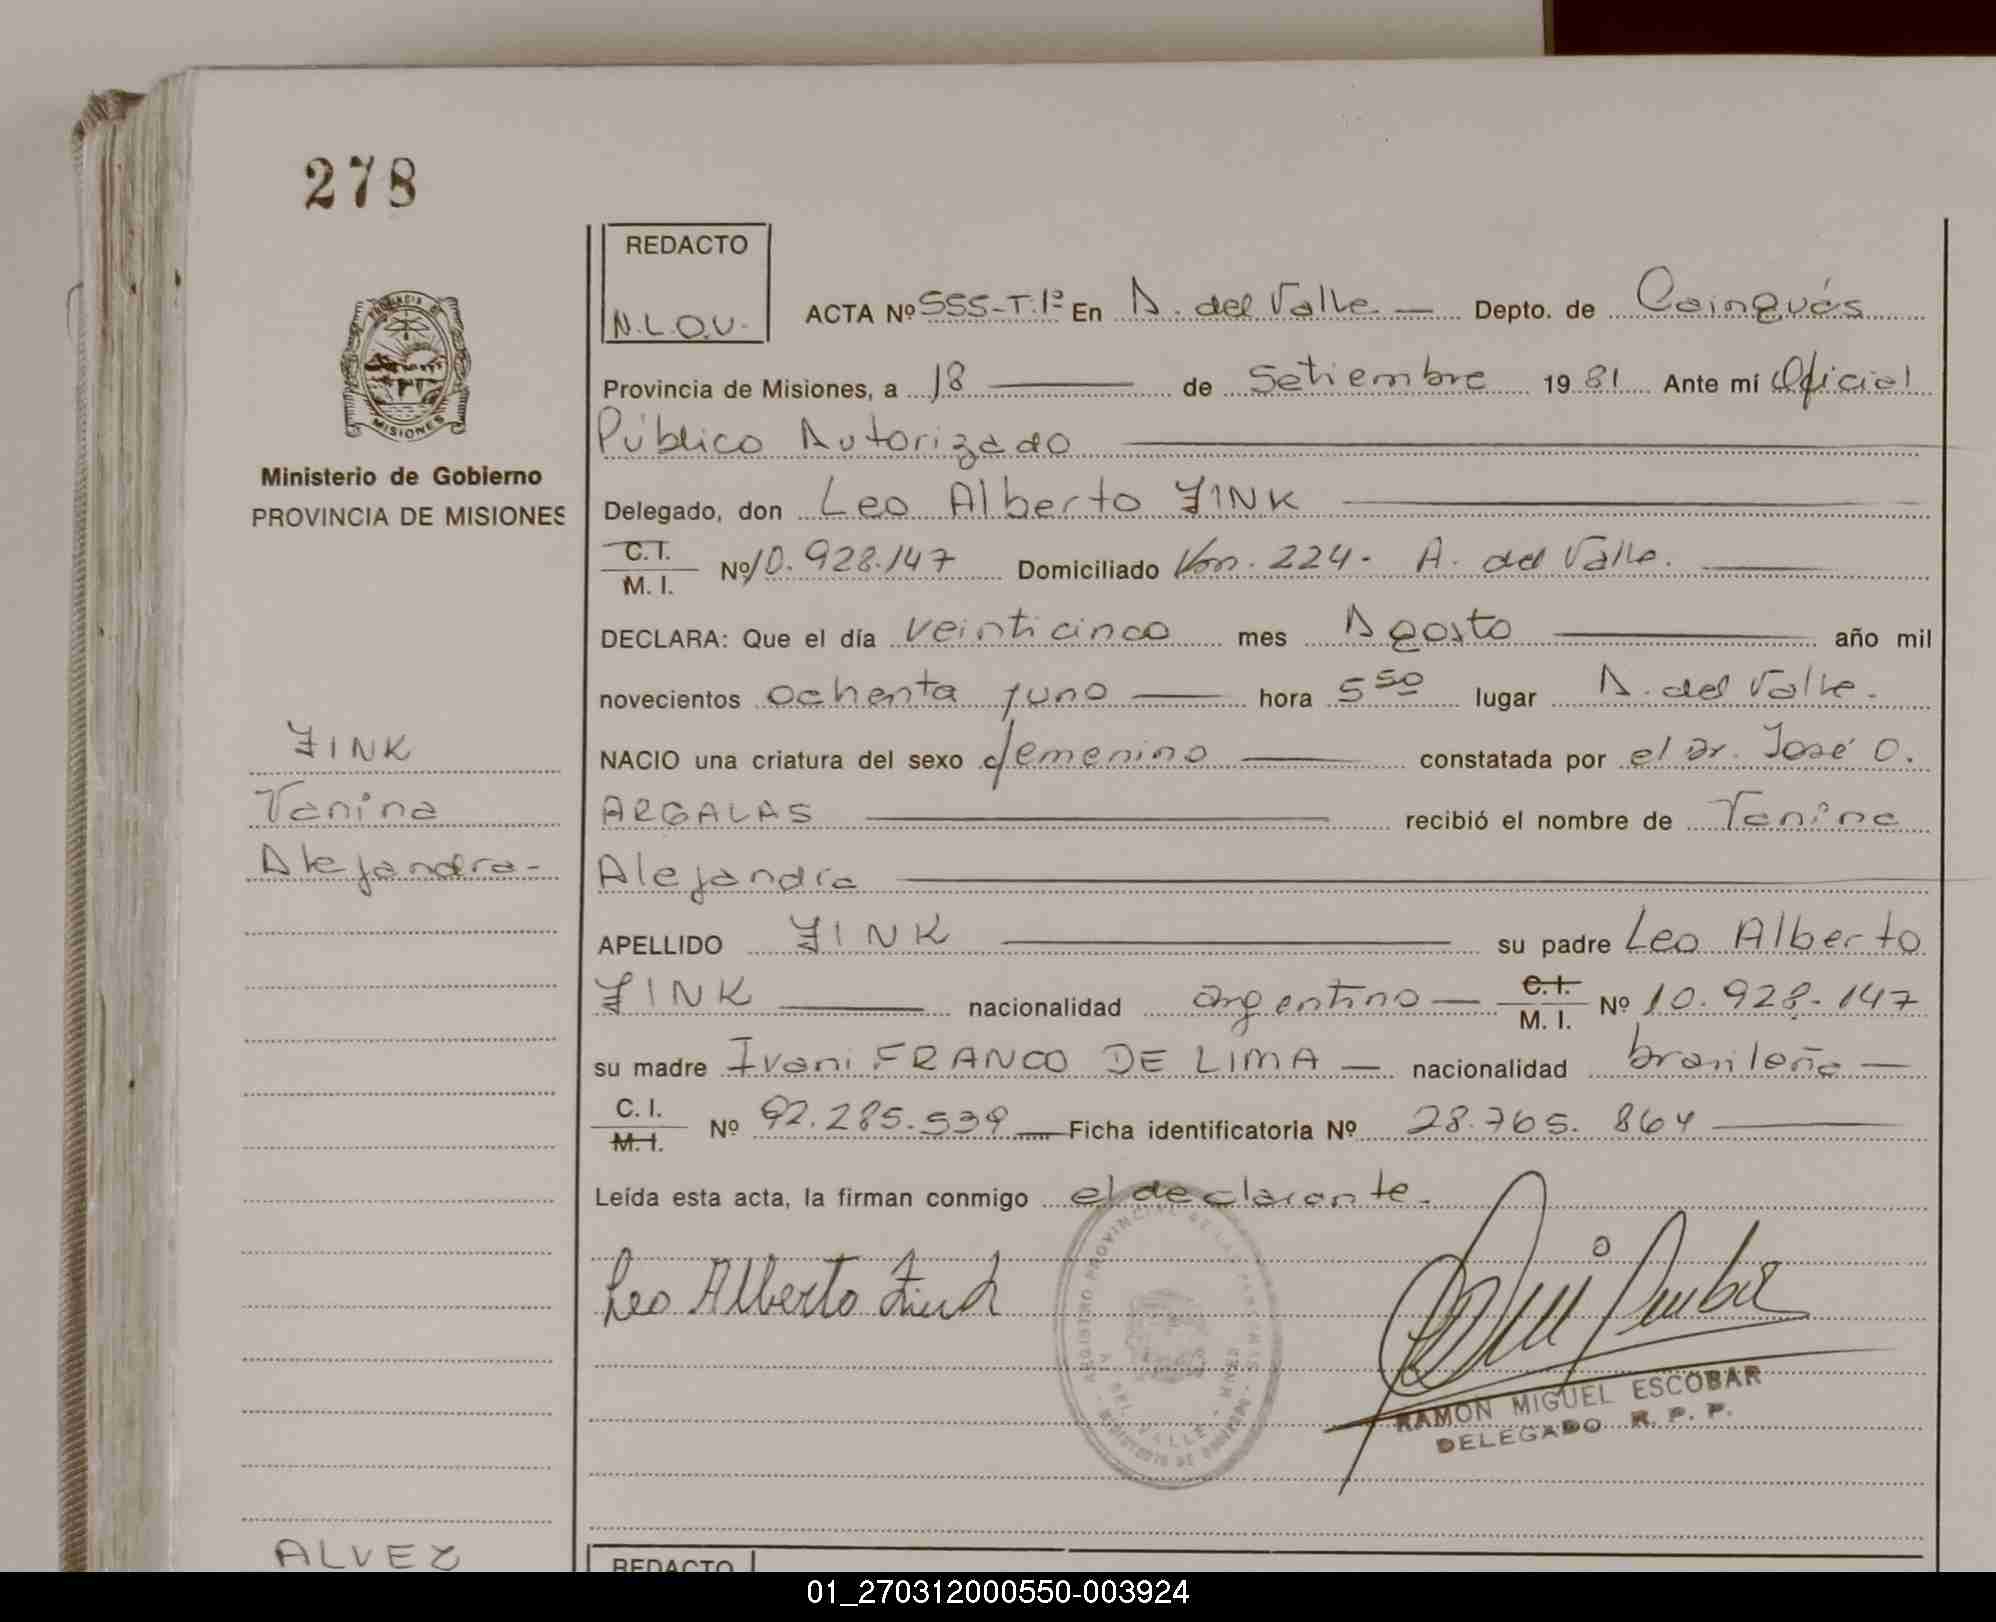 278
REDACTO
N.L.O.V.
ACTA Nº 555-T.1º En A. del Valle — Depto. de Cainguás
Provincia de Misiones, a 18 — de Setiembre 1981 Ante mí Oficial
Público Autorizado —
PROVINCIA DE
MISIONES
Ministerio de Gobierno
PROVINCIA DE MISIONES
Delegado, don Leo Alberto FINK —
C.I.
M. I. Nº 10.928.147 Domiciliado Km. 224. A. del Valle. —
DECLARA: Que el día veinticinco mes Agosto — año mil
novecientos ochenta y uno — hora 5 50 lugar A. del Valle.
FINK
Vanina
Alejandra-
NACIO una criatura del sexo femenino — constatada por el Dr. José O.
ARGALAS — recibió el nombre de Vanina
Alejandra —
APELLIDO FINK — su padre Leo Alberto
FINK — nacionalidad argentino — C.I.
M. I. Nº 10.928.147
su madre Ivani FRANCO DE LIMA — nacionalidad brasileña —
C. I.
M. I. Nº 92.285.539 — Ficha identificatoria Nº 28.765.864 —
Leída esta acta, la firman conmigo el declarante.
Leo Alberto Fink
REGISTRO PROVINCIAL DE LAS PERSONAS
A. DEL VALLE - MNES
RAMON MIGUEL ESCOBAR
DELEGADO R. P. P.
ALVEZ
REDACTO
01_270312000550-003924